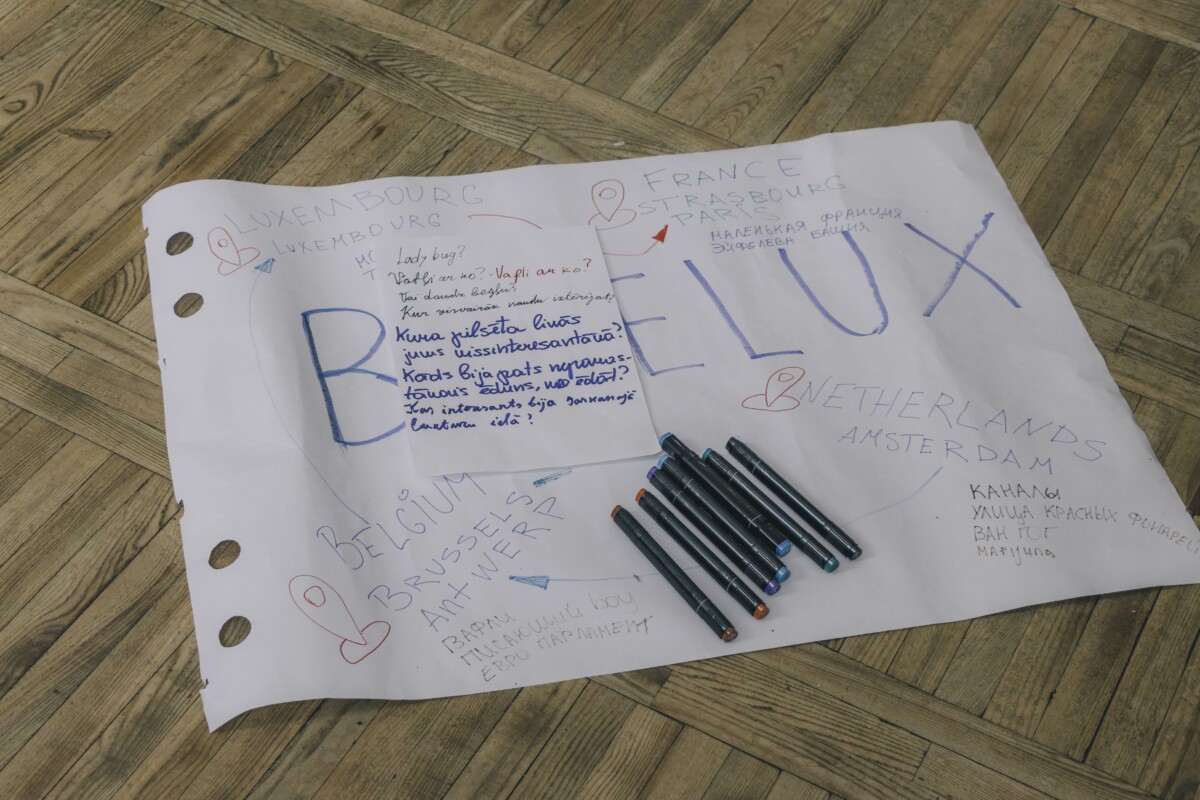 LUXEMBOURG
LUXEMBOURG
FRANCE
STRASBOURG
PARIS
МАЛЕНЬКАЯ ФРАНЦИЯ
ЭЙФЕЛЕВА БАШНЯ
B ELUX
Lady bug?
Vafļi ar ko? - Vafļi ar ko?
Vai daudz
Kur visvairāk naudu iztērējāt?
Kura pilsēta linās
jums vissinteresantākā?
Kāds bija pats neparas-
tākais ēdiens, ko ēdāt?
Kas interesants bija sarkanajā
lukturu ielā?
NETHERLANDS
AMSTERDAM
КАНАЛЫ
УЛИЦА КРАСНЫХ ФОНАРЕЙ
ВАН ГОГ
BELGIUM
BRUSSELS
ANTWERP
ВАФЛИ
ПИСАЮЩИЙ boy
ЕВРО ПАРЛАМЕНТ